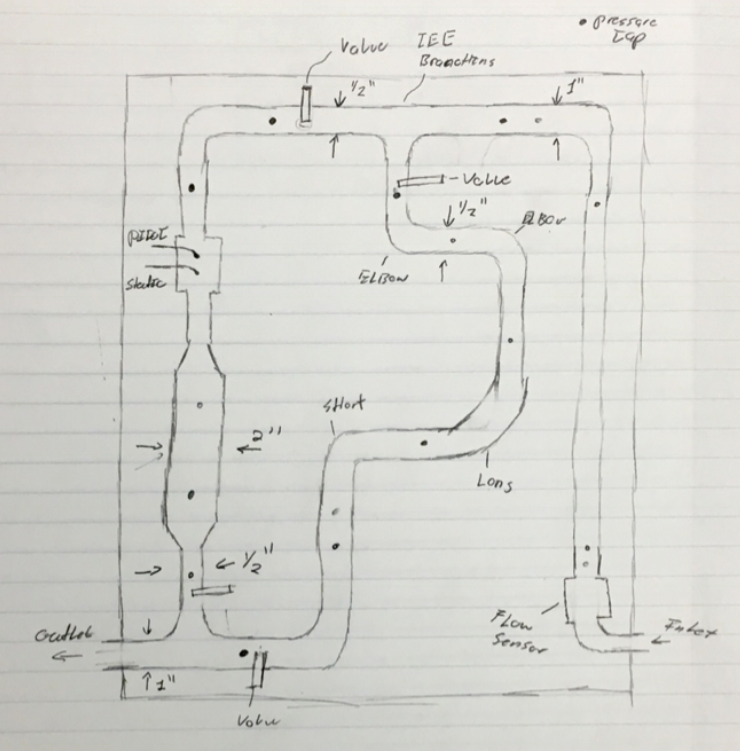 • Pressure
Tap
Valve
TEE
Branching
1/2"
1"
- Valve
1/2"
ELBow
ELBow
Pitot
Static
Short
2"
Long
1/2"
Flow
Sensor
Inlet
Outlet
1"
Valve